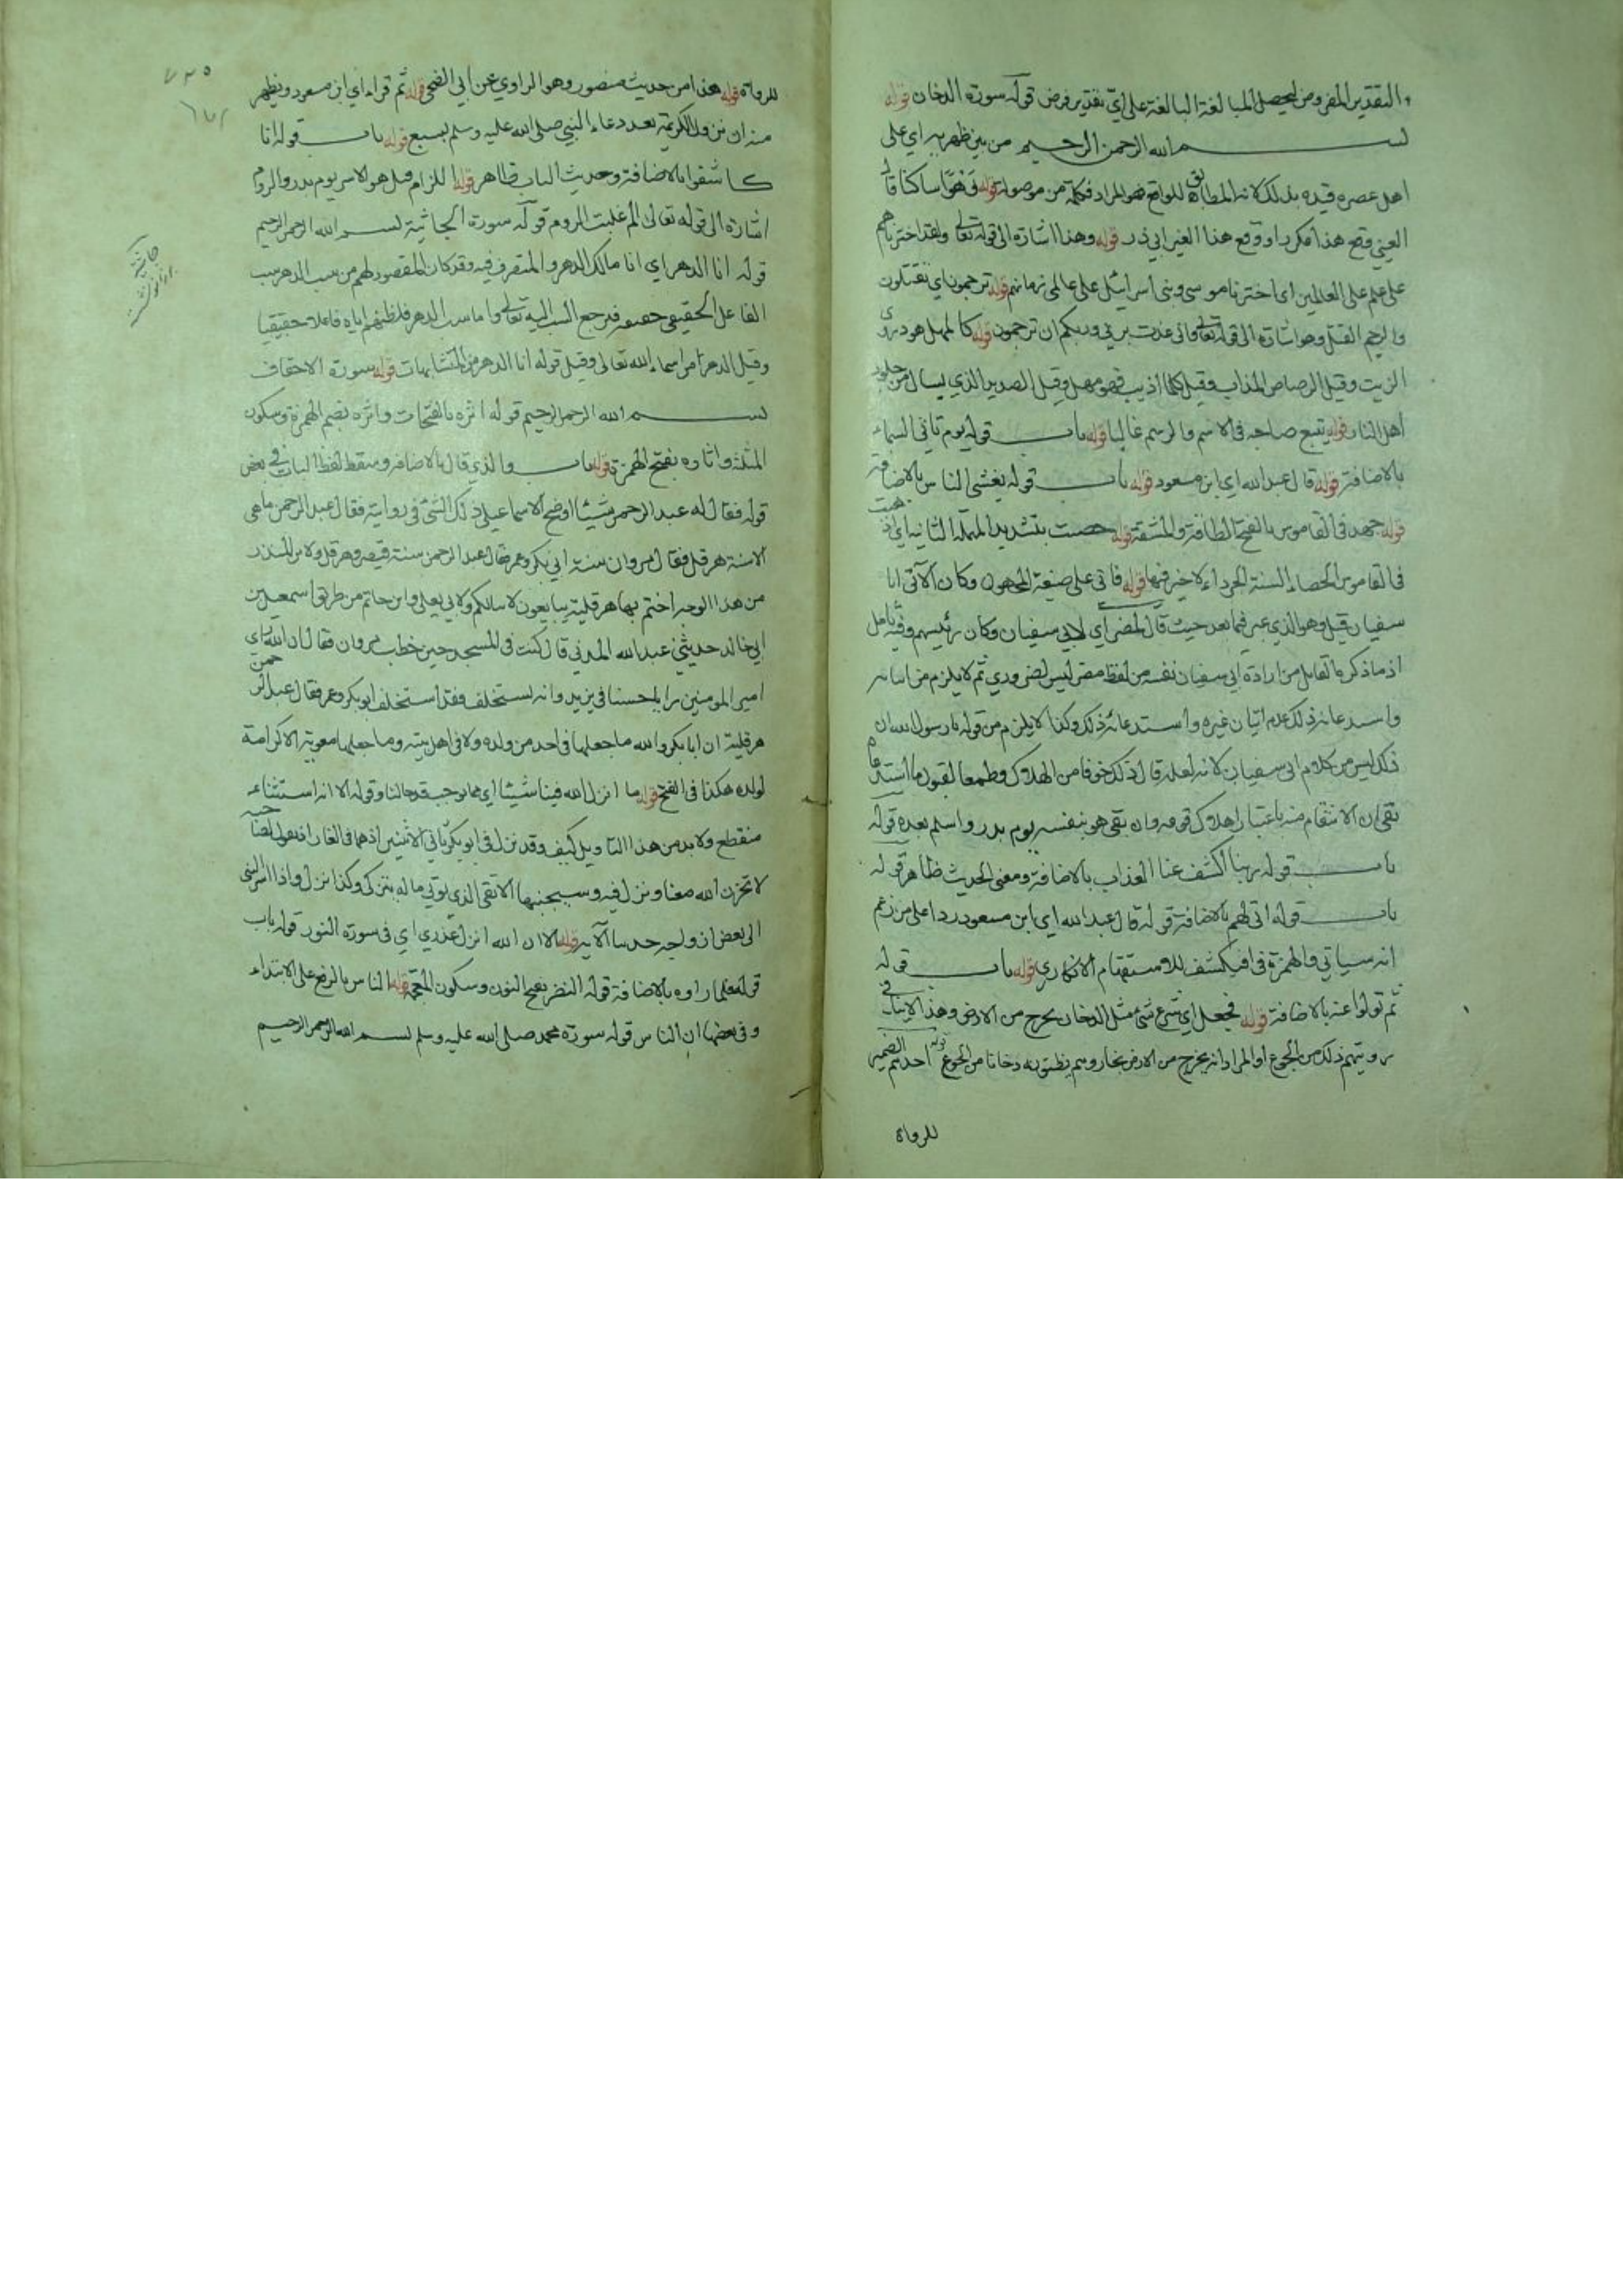 التقدير المفروض ليحصل المبالغة البالغة على اي تقدير فرض قوله سورة الدخان قوله
بسم الله الرحمن الرحيم من بين ظهريه اي على
اهل عصره قيده بذلك لانه المطابق للواقع فهو المراد فكلمة من موصولة قوله رهوا ساكنا قال
العيني وقع هذا مكررا ووقع هذا لغير ابي ذر قوله وهذا اشارة الى قوله تعالى ولقد اخترناهم
على علم على العالمين اي اخترنا موسى وبني اسرائيل على عالمي زمانهم قوله ترجمون اي تقتلون
والرجم القتل وهو اشارة الى قوله تعالى واني عذت بربي وربكم ان ترجمون قوله كالمهل هو دردي
الزيت وقيل الرصاص المذاب وقيل كلما اذيب فهو مهل وقيل الصديد الذي يسال من جلود
اهل النار قوله يتبع صاحبه في الاسم والرسم غالبا قوله باب قوله يوم تاتي السماء
بالاضافة قوله قال عبد الله اي ابن مسعود قوله باب قوله يغشى الناس بالاضافة
قوله جهد في القاموس بالفتح الطاقة والمشقة قوله حصت بتشديد المهملة الثانية اي ذهبت
في القاموس الحصاء السنة الجرداء لا خير فيها قوله فاتى على صيغة المجهول وكان الآتي ابا
سفيان قيل وهو الذي عبر فيما بعد حيث قال لمضر اي لابي سفيان وكان رئيسهم وفيه تامل
اذ ما ذكره القائل من ارادة ابي سفيان نفسه من لفظ مضر ليس بضروري ثم لا يلزم من اتيانه
واستدعائه ذلك عدم اتيان غيره واستدعائه ذلك وكذا لا يلزم من قوله يا رسول الله ان
ذلك ليس من كلام ابي سفيان لانه لعله قال ذلك خوفا من الهلاك وطمعا لقبول ما استدعاه
بقي ان الانتقام منه باعتبار اهلاك قومه وان بقي هو بنفسه يوم بدر واسلم بعده قوله
باب قوله ربنا اكشف عنا العذاب بالاضافة ومعنى الحديث ظاهر قوله
باب قوله انى لهم بالاضافة قوله قال عبد الله اي ابن مسعود ردا على من زعم
انه سياتي والهمزة في افيكشف للاستفهام الانكاري قوله باب قوله
ثم تولوا عنه بالاضافة قوله فجعل اي شرع شئ مثل الدخان يخرج من الارض وهذا لا ينافي
رويتهم ذلك من الجوع او المراد انه يخرج من الارض بخار وهم يظنونه دخانا من الجوع قوله احدهم الضمير
للرواة
للرواة قوله هذا من حديث منصور وهو الراوي عن ابي الضحى قوله ثم قرا اي ابن مسعود ويظهر
منه ان نزول الكريمة بعد دعاء النبي صلى الله عليه وسلم بسبع قوله باب قوله انا
كاشفوا بالاضافة وحديث الباب ظاهر قوله اللزام قيل هو الاسر يوم بدر والروم
اشارة الى قوله تعالى الم غلبت الروم قوله سورة الجاثية بسم الله الرحمن الرحيم
قوله انا الدهر اي انا مالك الدهر والمتصرف فيه وقد كان المقصود لهم من سب الدهر سب
الفاعل الحقيقي فيرجع السب اليه تعالى واما سب الدهر فلظنهم اياه فاعلا حقيقيا
وقيل الدهر من اسماء الله تعالى وقيل قوله انا الدهر من المتشابهات قوله سورة الاحقاف
بسم الله الرحمن الرحيم قوله اثره بالفتحات واثره بضم الهمزة وسكون
المثلثة واثاره بفتح الهمزة قوله باب والذي قال بالاضافة وسقط لفظ الباب في بعض
قوله فقال له عبد الرحمن شيئا اوضح الاسماعيلي ذلك الشئ في رواية فقال عبد الرحمن ما هي
الا سنة هرقل فقال مروان سنة ابي بكر وعمر فقال عبد الرحمن سنة قيصر وهرقل ولابن المنذر
من هذا الوجه اجئتم بها هرقلية تبايعون لابنائكم ولابي يعلى وابن حاتم من طريق اسمعيل بن
ابي خالد حدثني عبد الله المدني قال كنت في المسجد حين خطب مروان فقال ان الله راي
امير المومنين رايا حسنا في يزيد وانه يستخلف فقد استخلف ابو بكر وعمر فقال عبد الرحمن
هرقلية ان ابا بكر والله ما جعلها في احد من ولده ولا في اهل بيته وما جعلها معوية الا كرامة
لولده هكذا في الفتح قوله ما انزل الله فينا شيئا اي مما يوجب قدحا لنا وقوله الا انه استثناء
منقطع ولا بد من هذا التاويل كيف وقد نزل في ابو بكر ثاني اثنين اذهما في الغار اذ يقول لصاحبه
لا تحزن ان الله معنا ونزل فيه وسيجنبها الاتقى الذي يوتي ماله يتزكى وكذا نزل واذا اسر النبي
الى بعض ازواجه حديثا الآية قوله الا ان الله انزل عذري اي في سورة النور قوله باب
قوله فلما راوه بالاضافة قوله النضر بفتح النون وسكون المعجمة قوله الناس بالرفع على الابتداء
وفي بعضها ان الناس قوله سورة محمد صلى الله عليه وسلم بسم الله الرحمن الرحيم